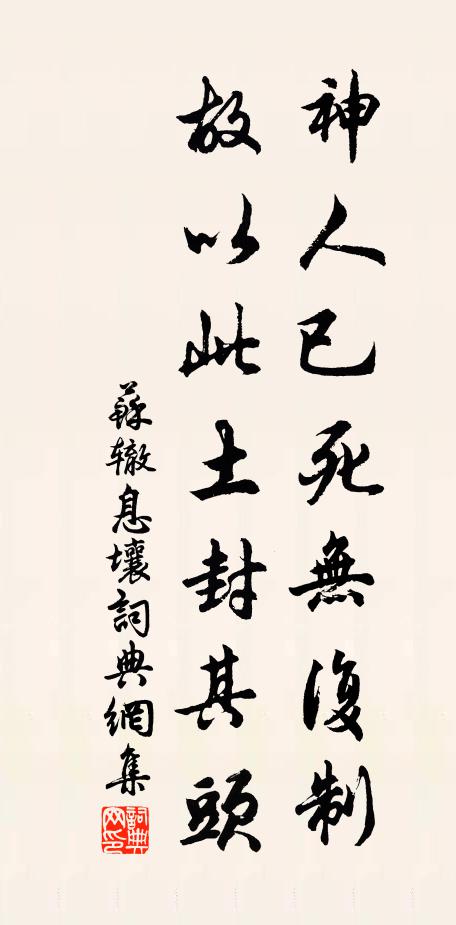 神人已死無復制
故以此土封其頭
蘇辙息壤詞典網集
詞典網印